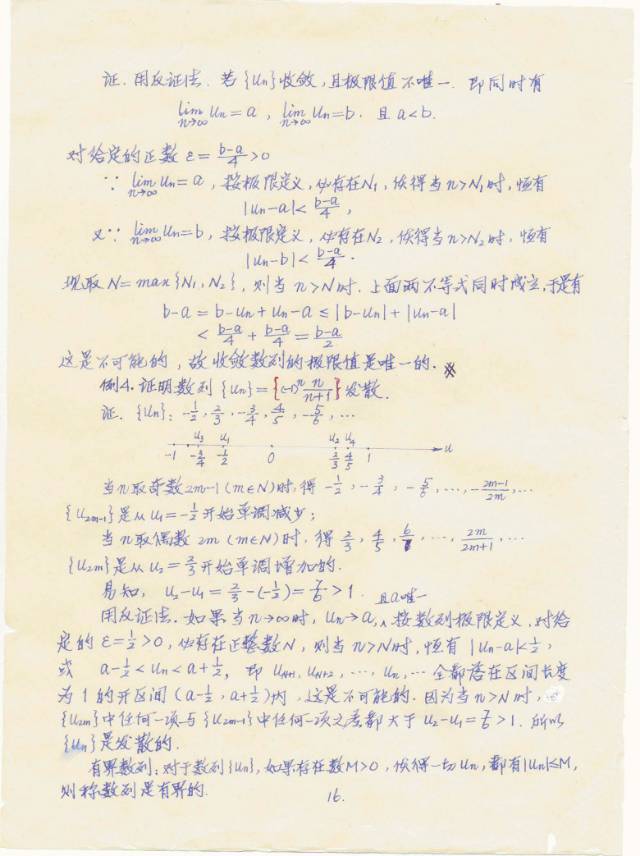 证. 用反证法. 若{Un}收敛, 且极限值不唯一. 即同时有
lim n→∞ Un = a, lim n→∞ Un = b. 且 a<b.
对给定的正数 ε = (b-a)/4 > 0
∵ lim n→∞ Un = a, 按极限定义, 必存在N₁, 使得当n>N₁时, 恒有
|Un-a| < (b-a)/4,
又∵ lim n→∞ Un = b, 按极限定义, 必存在N₂, 使得当n>N₂时, 恒有
|Un-b| < (b-a)/4.
现取 N = max{N₁, N₂}, 则当 n>N时. 上面两不等式同时成立, 于是有
b-a = b-Un+Un-a ≤ |b-Un| + |Un-a|
< (b-a)/4 + (b-a)/4 = (b-a)/2
这是不可能的, 故收敛数列的极限值是唯一的. ※
例4. 证明数列 {Un} = {(-1)ⁿ n/(n+1)} 发散.
证. {Un}: -1/2, 2/3, -3/4, 4/5, -5/6, …
U₃ U₁ U₂ U₄
-1 -3/4 1/2 0 2/3 4/5 1 u
当n取奇数 2m-1 (m∈N)时, 得 -1/2, -3/4, -5/6, …, -(2m-1)/2m, …
{U2m-1}是从 U₁ = -1/2 开始单调减少;
当n取偶数 2m (m∈N)时, 得 2/3, 4/5, 6/7, …, 2m/(2m+1), …
{U2m}是从 U₂ = 2/3 开始单调增加的.
易知, U₂-U₁ = 2/3-(-1/2) = 7/6 > 1. 且a唯一
用反证法. 如果当n→∞时, Un→a,∧按数列极限定义. 对给
定的 ε=1/2>0, 必存在正整数N, 则当n>N时, 恒有 |Un-a|<1/2,
或 a-1/2 < Un < a+1/2, 即 UN+1, UN+2, …, Un, … 全都落在区间长度
为1的开区间 (a-1/2, a+1/2)内, 这是不可能的. 因为当n>N时,
{U2m}中任何一项与{U2m-1}中任何一项之差都大于 U₂-U₁=7/6>1. 所以
{Un}是发散的.
有界数列: 对于数列{Un}, 如果存在数M>0, 使得一切Un, 都有|Un|≤M,
则称数列是有界的.
16.